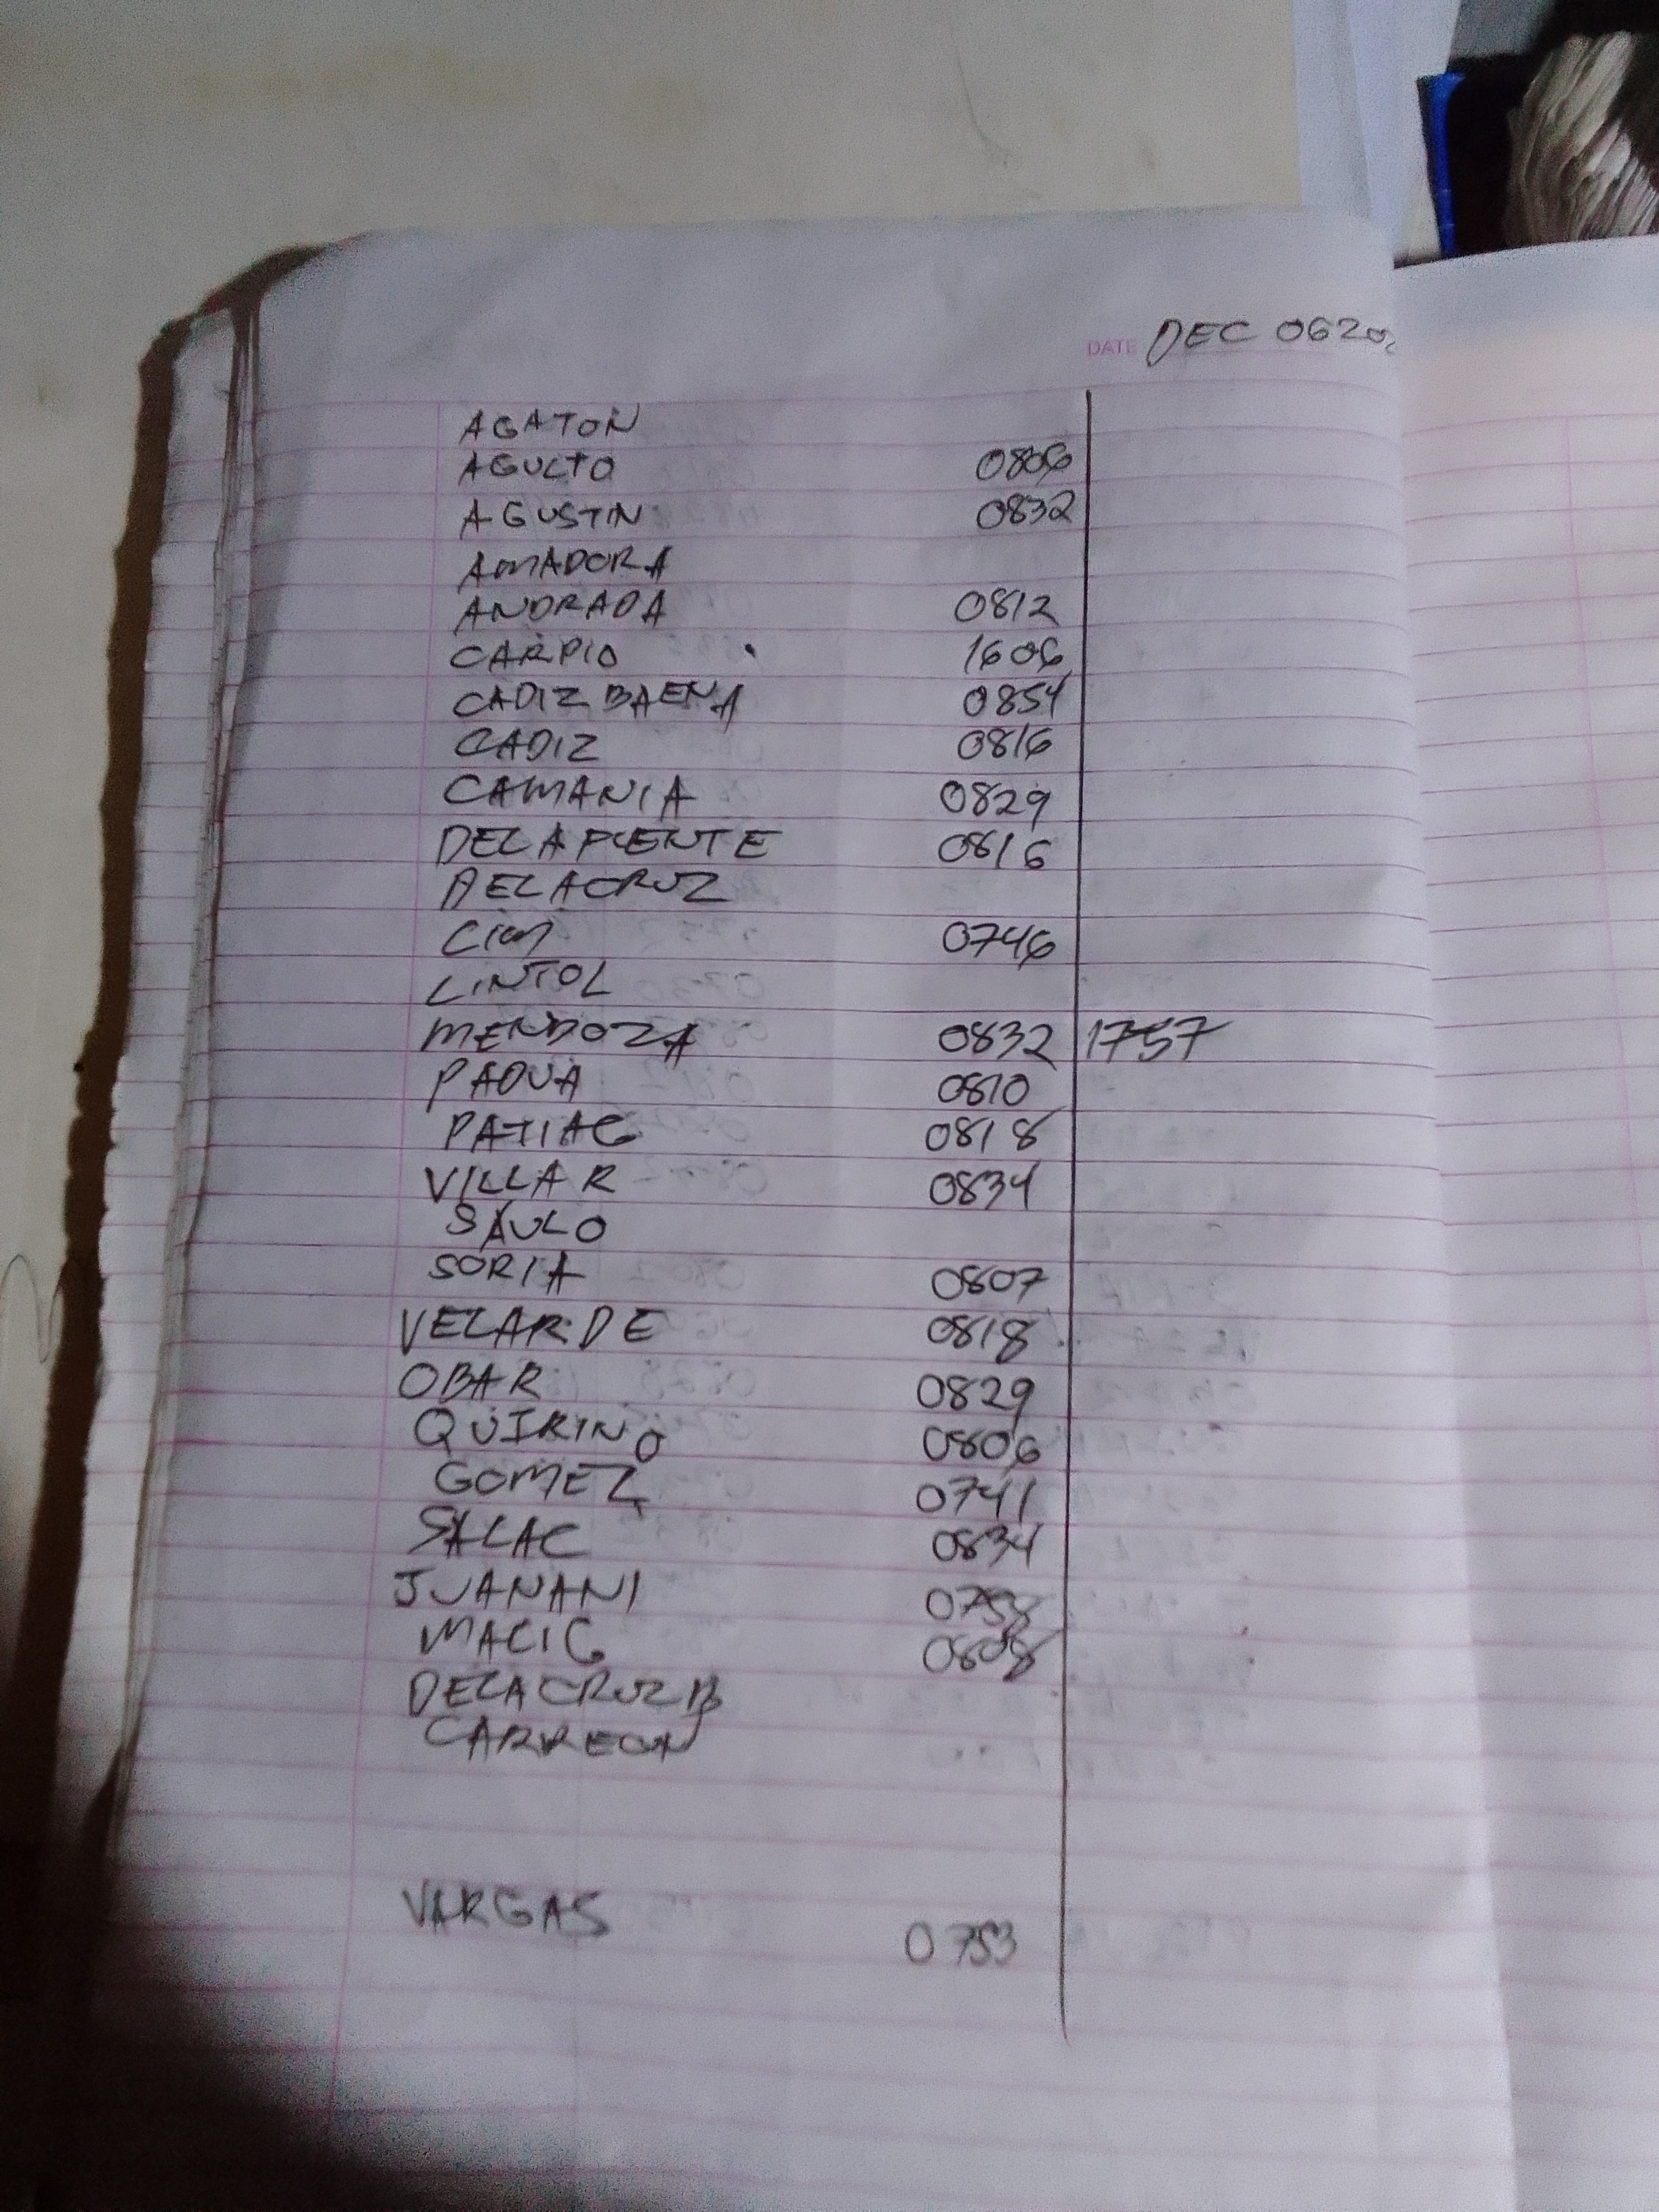 DATE DEC 06 202
AGATON
AGULTO 0806
AGUSTIN 0832
AMADORA
ANDRADA 0812
CARPIO 1606
CADIZ BAENA 0854
CADIZ 0816
CAMANIA 0829
DELAPUENTE 0816
DELACRUZ
LIM 0746
LINTOL
MENDOZA 0832 1757
PADUA 0810
PATIAG 0818
VILLAR 0834
SAULO
SORIA 0807
VELARDE 0818
OBAR 0829
QUIRINO 0806
GOMEZ 0741
SALAC 0834
JUANANI 0758
MACIG 0808
DELACRUZ B
CARREON
VARGAS 0753